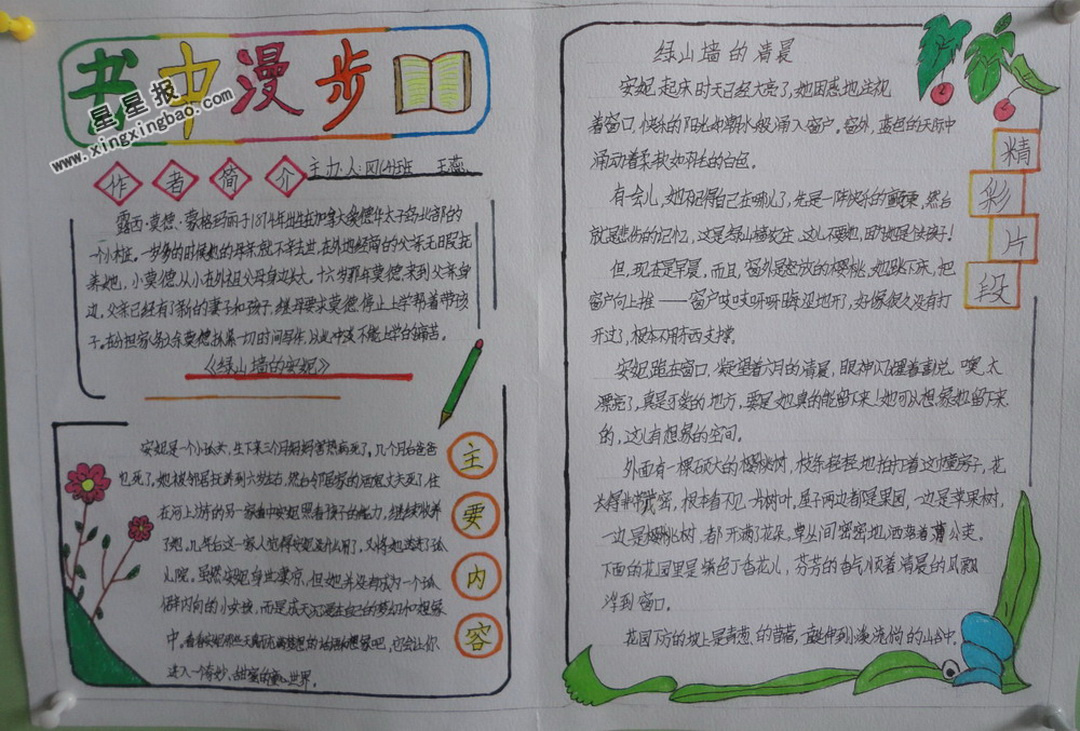 书中漫步
星星报
www.xingxingbao.com
作者简介
主办人:四(4)班 王蕊
露西·莫德·蒙格玛丽于1874年出生在加拿大爱德华太子岛北部的
一个小村庄。一岁多的时候她的母亲就不幸去世,在外地经商的父亲无日
养她,小莫德从小在外祖父母身边长大。十六岁那年莫德来到父亲身
边,父亲已经有了新的妻子和孩子,继母要求莫德停止上学帮着带孩
子。在分担家务之余莫德抓紧一切时间写作,以此冲淡不能上学的痛苦。
《绿山墙的安妮》
主要内容
安妮是一个小孤女,生下来三个月妈妈害热病死了,几个月后爸爸
也死了,她被邻居托养到六岁左右,然后邻居家的酒鬼丈夫死了,住
在河上游的另一家看中安妮照看孩子的能力,继续收养
了她。几年后这一家人觉得安妮没什么用了,又将她送去了孤
儿院。虽然安妮身世凄凉,但她并没有成为一个孤
僻内向的小女孩,而是成天沉浸在自己的梦幻和想象
中。看看安妮那些天真而充满梦想的话语和想象吧,它会让你
进入一个奇妙、甜蜜的童心世界。
绿山墙的清晨
精彩片段
安妮起床时天已经大亮了,她困惑地坐视
着窗口,快乐的阳光如潮水般涌入窗户。窗外,蓝色的天际中
涌动着柔软如羽毛的白色。
有一会儿,她不记得自己在哪儿了,先是一阵快乐的颤栗,然后
就是悲伤的记忆,这是绿山墙农庄,这儿不要她,因为她是女孩子!
但,现在是早晨,而且,窗外是怒放的樱桃,她跳下床,把
窗户向上推——窗户吱吱呀呀晦涩地开了,好像很久没有打
开过了,根本不用东西支撑。
安妮跪在窗口,凝望着六月的清晨,眼神闪耀着喜悦,噢,太
漂亮了,真是可爱的地方,要是她真的能留下来!她可以想象她留下来
的,这儿有想象的空间。
外面有一棵硕大的樱桃树,枝条轻轻地拍打着这幢房子,花
长得非常密,根本看不见一片树叶,屋子两边都是果园,一边是苹果树,
一边是樱桃树,都开满了花朵,草丛间密密地洒落着蒲公英。
下面的花园里是紫色丁香花儿,芬芳的香气顺着清晨的风飘
浮到窗口。
花园下方的坡上是青葱的苜蓿,一直延伸到小溪流倘的山谷中。